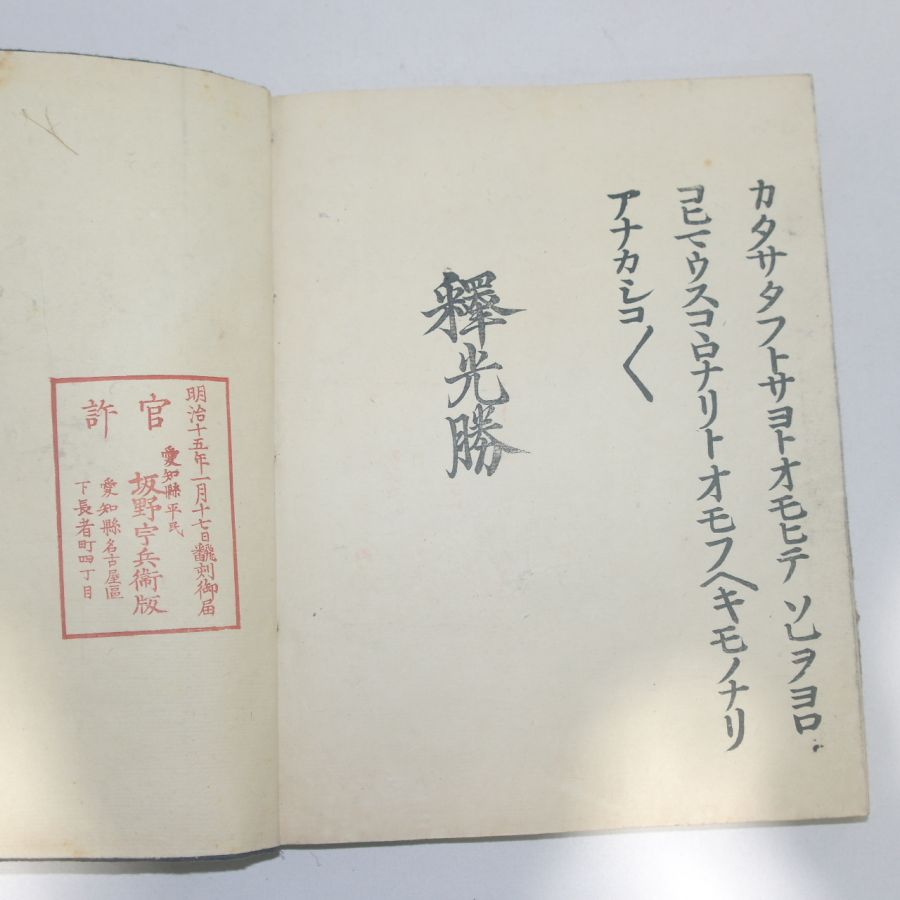 カタサタフトサヨトオモヒテ ソレヲヨロ
コヒマウスコヽロナリトオモフヘキモノナリ
アナカシコ〱
釋光勝
明治十五年一月十七日飜刻御届
官許
愛知縣平民
坂野宇兵衞版
愛知縣名古屋區
下長者町四丁目